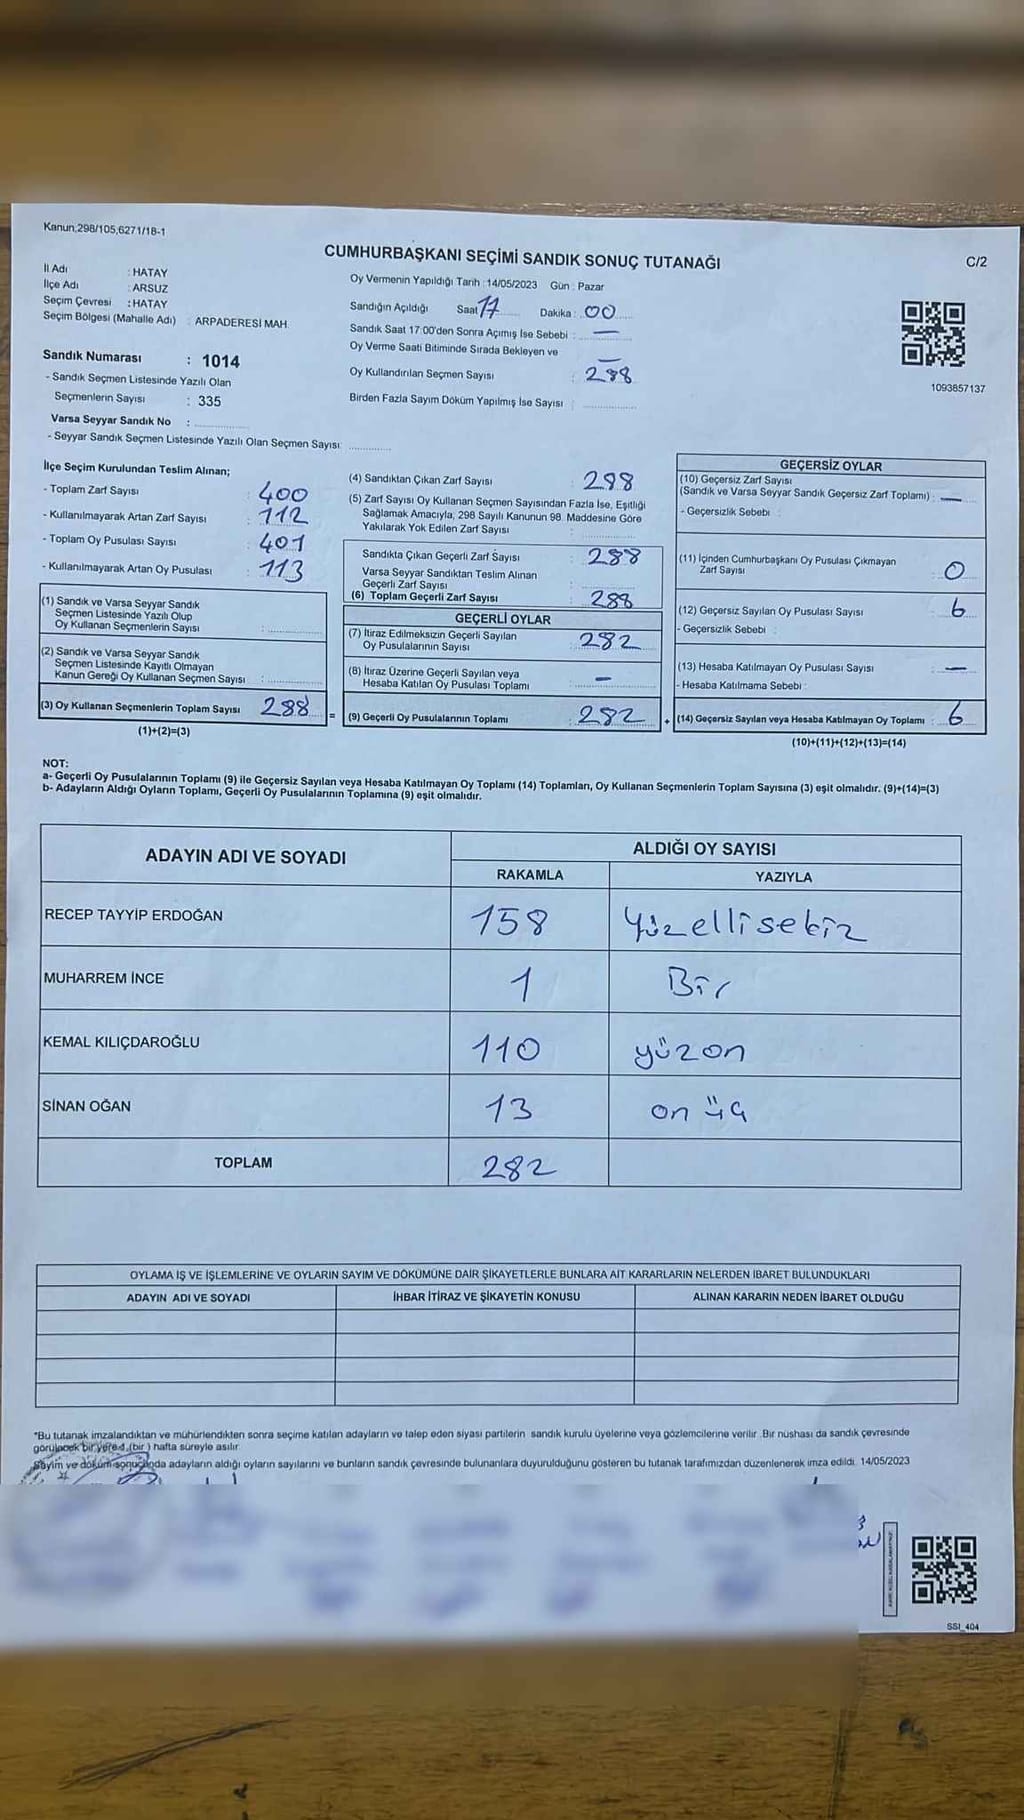 Kanun,298/105,6271/18-1
CUMHURBAŞKANI SEÇİMİ SANDIK SONUÇ TUTANAĞI
C/2
İl Adı : HATAY
İlçe Adı : ARSUZ
Seçim Çevresi : HATAY
Seçim Bölgesi (Mahalle Adı) : ARPADERESİ MAH.
Sandık Numarası : 1014
- Sandık Seçmen Listesinde Yazılı Olan
Seçmenlerin Sayısı : 335
Varsa Seyyar Sandık No :
- Seyyar Sandık Seçmen Listesinde Yazılı Olan Seçmen Sayısı:
Oy Vermenin Yapıldığı Tarih : 14/05/2023 Gün : Pazar
Sandığın Açıldığı Saat 17 Dakika : 00
Sandık Saat 17:00'den Sonra Açımış İse Sebebi : —
Oy Verme Saati Bitiminde Sırada Bekleyen ve —
Oy Kullandırılan Seçmen Sayısı : 288
Birden Fazla Sayım Döküm Yapılmış İse Sayısı :
1093857137
İlçe Seçim Kurulundan Teslim Alınan;
- Toplam Zarf Sayısı : 400
- Kullanılmayarak Artan Zarf Sayısı : 112
- Toplam Oy Pusulası Sayısı : 401
- Kullanılmayarak Artan Oy Pusulası : 113
(1) Sandık ve Varsa Seyyar Sandık
Seçmen Listesinde Yazılı Olup
Oy Kullanan Seçmenlerin Sayısı :
(2) Sandık ve Varsa Seyyar Sandık
Seçmen Listesinde Kayıtlı Olmayan
Kanun Gereği Oy Kullanan Seçmen Sayısı :
(3) Oy Kullanan Seçmenlerin Toplam Sayısı 288
(1)+(2)=(3)
=
(4) Sandıktan Çıkan Zarf Sayısı : 288
(5) Zarf Sayısı Oy Kullanan Seçmen Sayısından Fazla İse, Eşitliği
Sağlamak Amacıyla, 298 Sayılı Kanunun 98. Maddesine Göre
Yakılarak Yok Edilen Zarf Sayısı
Sandıkta Çıkan Geçerli Zarf Sayısı : 288
Varsa Seyyar Sandıktan Teslim Alınan
Geçerli Zarf Sayısı
(6) Toplam Geçerli Zarf Sayısı : 288
GEÇERLİ OYLAR
(7) İtiraz Edilmeksizin Geçerli Sayılan
Oy Pusulalarının Sayısı : 282
(8) İtiraz Üzerine Geçerli Sayılan veya
Hesaba Katılan Oy Pusulası Toplamı : —
(9) Geçerli Oy Pusulalarının Toplamı : 282
+
GEÇERSİZ OYLAR
(10) Geçersiz Zarf Sayısı
(Sandık ve Varsa Seyyar Sandık Geçersiz Zarf Toplamı) : —
- Geçersizlik Sebebi :
(11) İçinden Cumhurbaşkanı Oy Pusulası Çıkmayan
Zarf Sayısı : 0
(12) Geçersiz Sayılan Oy Pusulası Sayısı : 6
- Geçersizlik Sebebi :
(13) Hesaba Katılmayan Oy Pusulası Sayısı : —
- Hesaba Katılmama Sebebi :
(14) Geçersiz Sayılan veya Hesaba Katılmayan Oy Toplamı : 6
(10)+(11)+(12)+(13)=(14)
NOT:
a- Geçerli Oy Pusulalarının Toplamı (9) ile Geçersiz Sayılan veya Hesaba Katılmayan Oy Toplamı (14) Toplamları, Oy Kullanan Seçmenlerin Toplam Sayısına (3) eşit olmalıdır. (9)+(14)=(3)
b- Adayların Aldığı Oyların Toplamı, Geçerli Oy Pusulalarının Toplamına (9) eşit olmalıdır.
ADAYIN ADI VE SOYADI
ALDIĞI OY SAYISI
RAKAMLA YAZIYLA
RECEP TAYYİP ERDOĞAN 158 Yüzellisekiz
MUHARREM İNCE 1 Bir
KEMAL KILIÇDAROĞLU 110 yüzon
SİNAN OĞAN 13 on üç
TOPLAM 282
OYLAMA İŞ VE İŞLEMLERİNE VE OYLARIN SAYIM VE DÖKÜMÜNE DAİR ŞİKAYETLERLE BUNLARA AİT KARARLARIN NELERDEN İBARET BULUNDUKLARI
ADAYIN ADI VE SOYADI İHBAR İTİRAZ VE ŞİKAYETİN KONUSU ALINAN KARARIN NEDEN İBARET OLDUĞU
*Bu tutanak imzalandıktan ve mühürlendikten sonra seçime katılan adayların ve talep eden siyasi partilerin sandık kurulu üyelerine veya gözlemcilerine verilir. Bir nüshası da sandık çevresinde
görülecek bir yere 1 (bir ) hafta süreyle asılır.
Sayim ve döküm sonucunda adayların aldığı oyların sayılarını ve bunların sandık çevresinde bulunanlara duyurulduğunu gösteren bu tutanak tarafımızdan düzenlenerek imza edildi. 14/05/2023
SSI_404